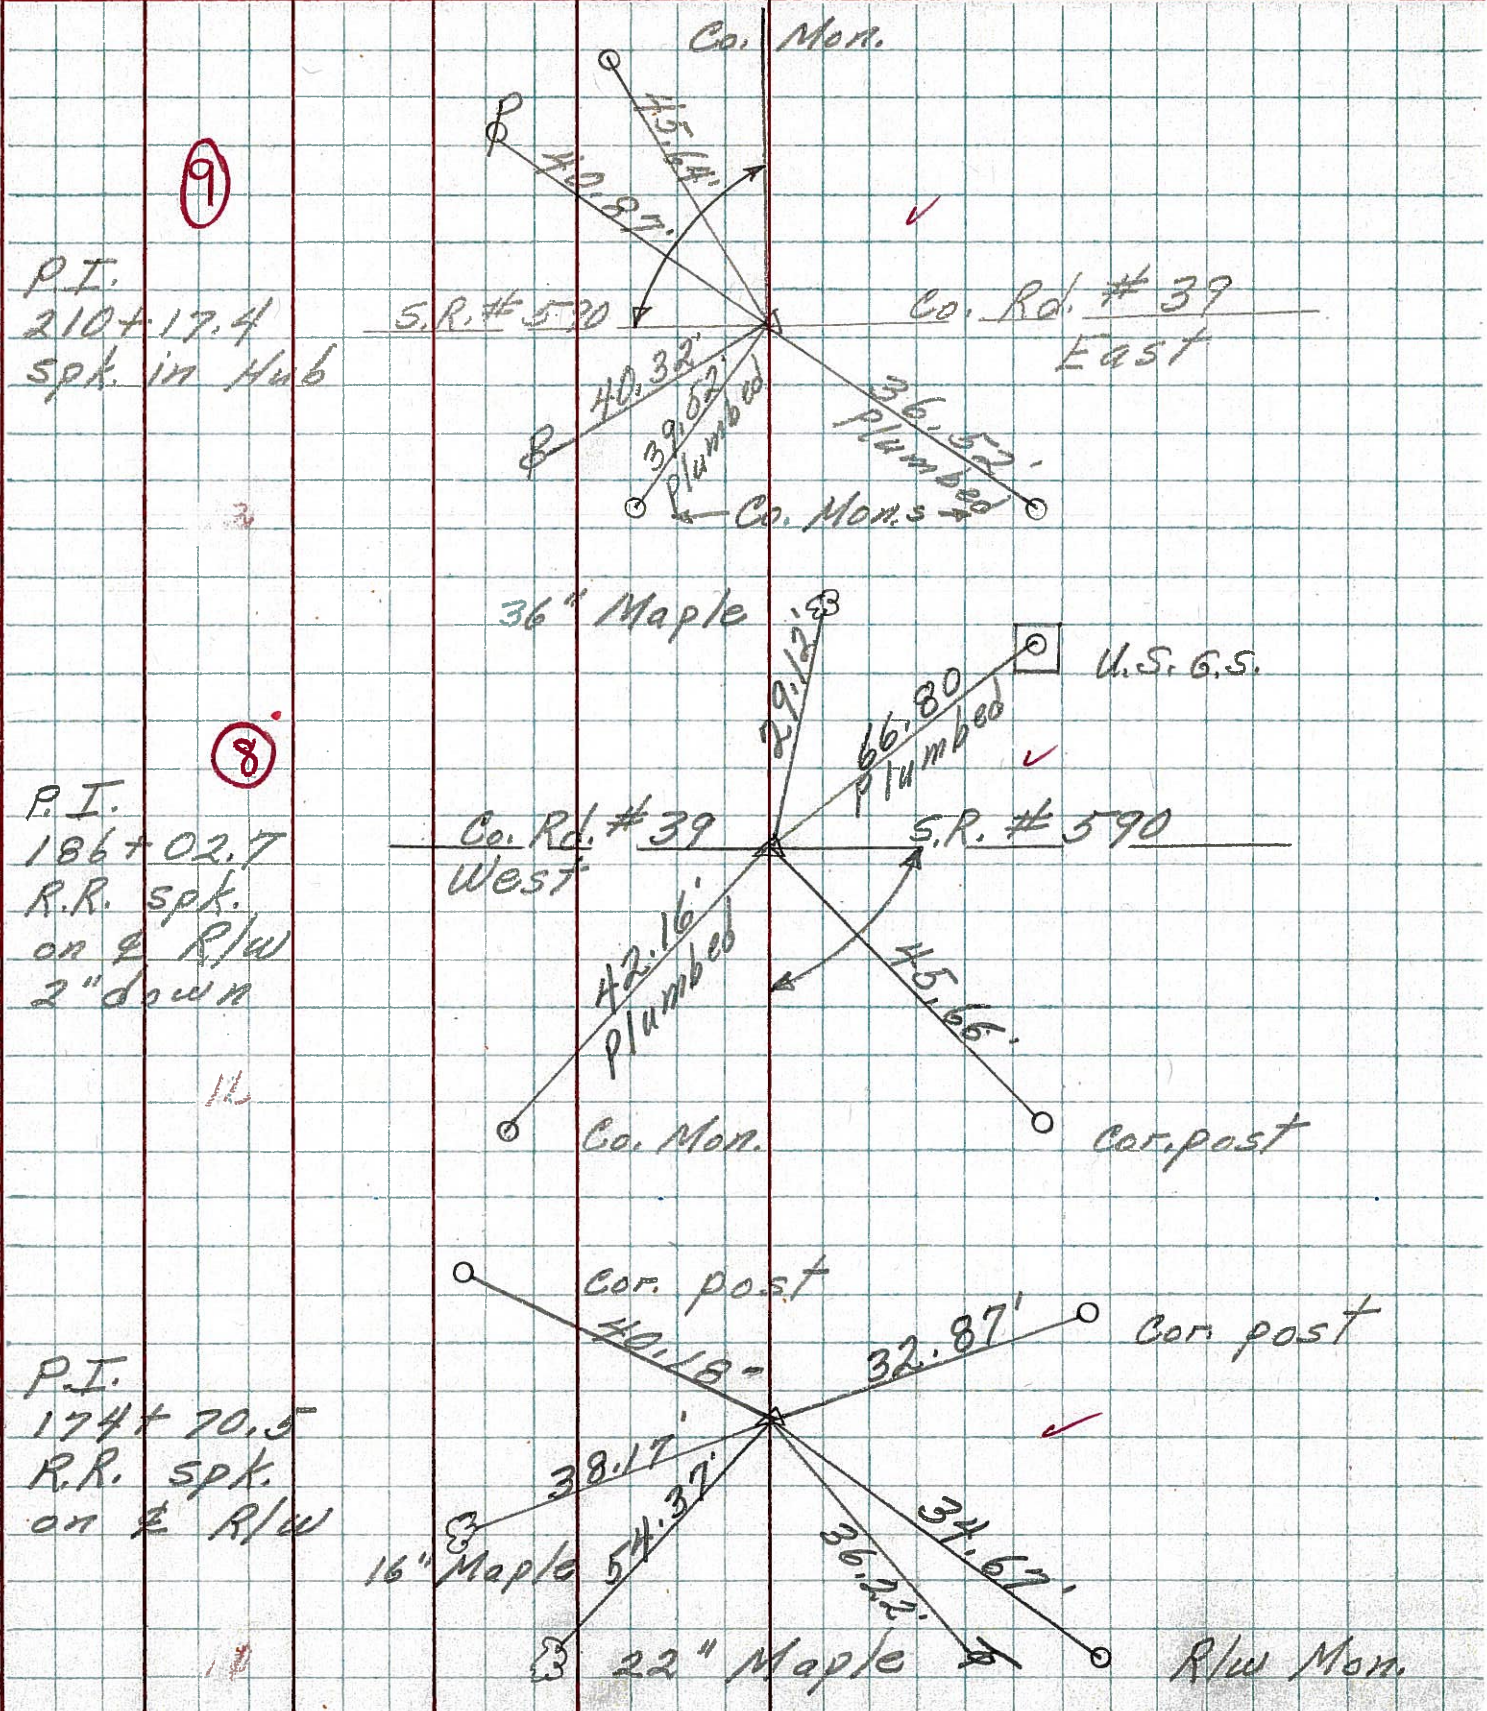 Co. Mon.
45.64'
40.87'
9
P.I.
210+17.4
spk. in Hub
S.R. # 590
Co. Rd. # 39
East
40.32'
39.52'
Plumbed
36.52'
Plumbed
Co. Mon.s
36" Maple
29.12'
66.80
Plumbed
U.S.G.S.
8
P.I.
186+02.7
R.R. spk.
on ℄ R/W
2" down
Co. Rd. # 39
West
S.R. # 590
42.16'
Plumbed
45.66'
Co. Mon.
Cor. post
Cor. post
40.18'
32.87'
Cor. post
P.I.
174+70.5
R.R. spk.
on ℄ R/W
38.17'
16" Maple
54.37'
22" Maple
36.22'
34.67'
R/W Mon.